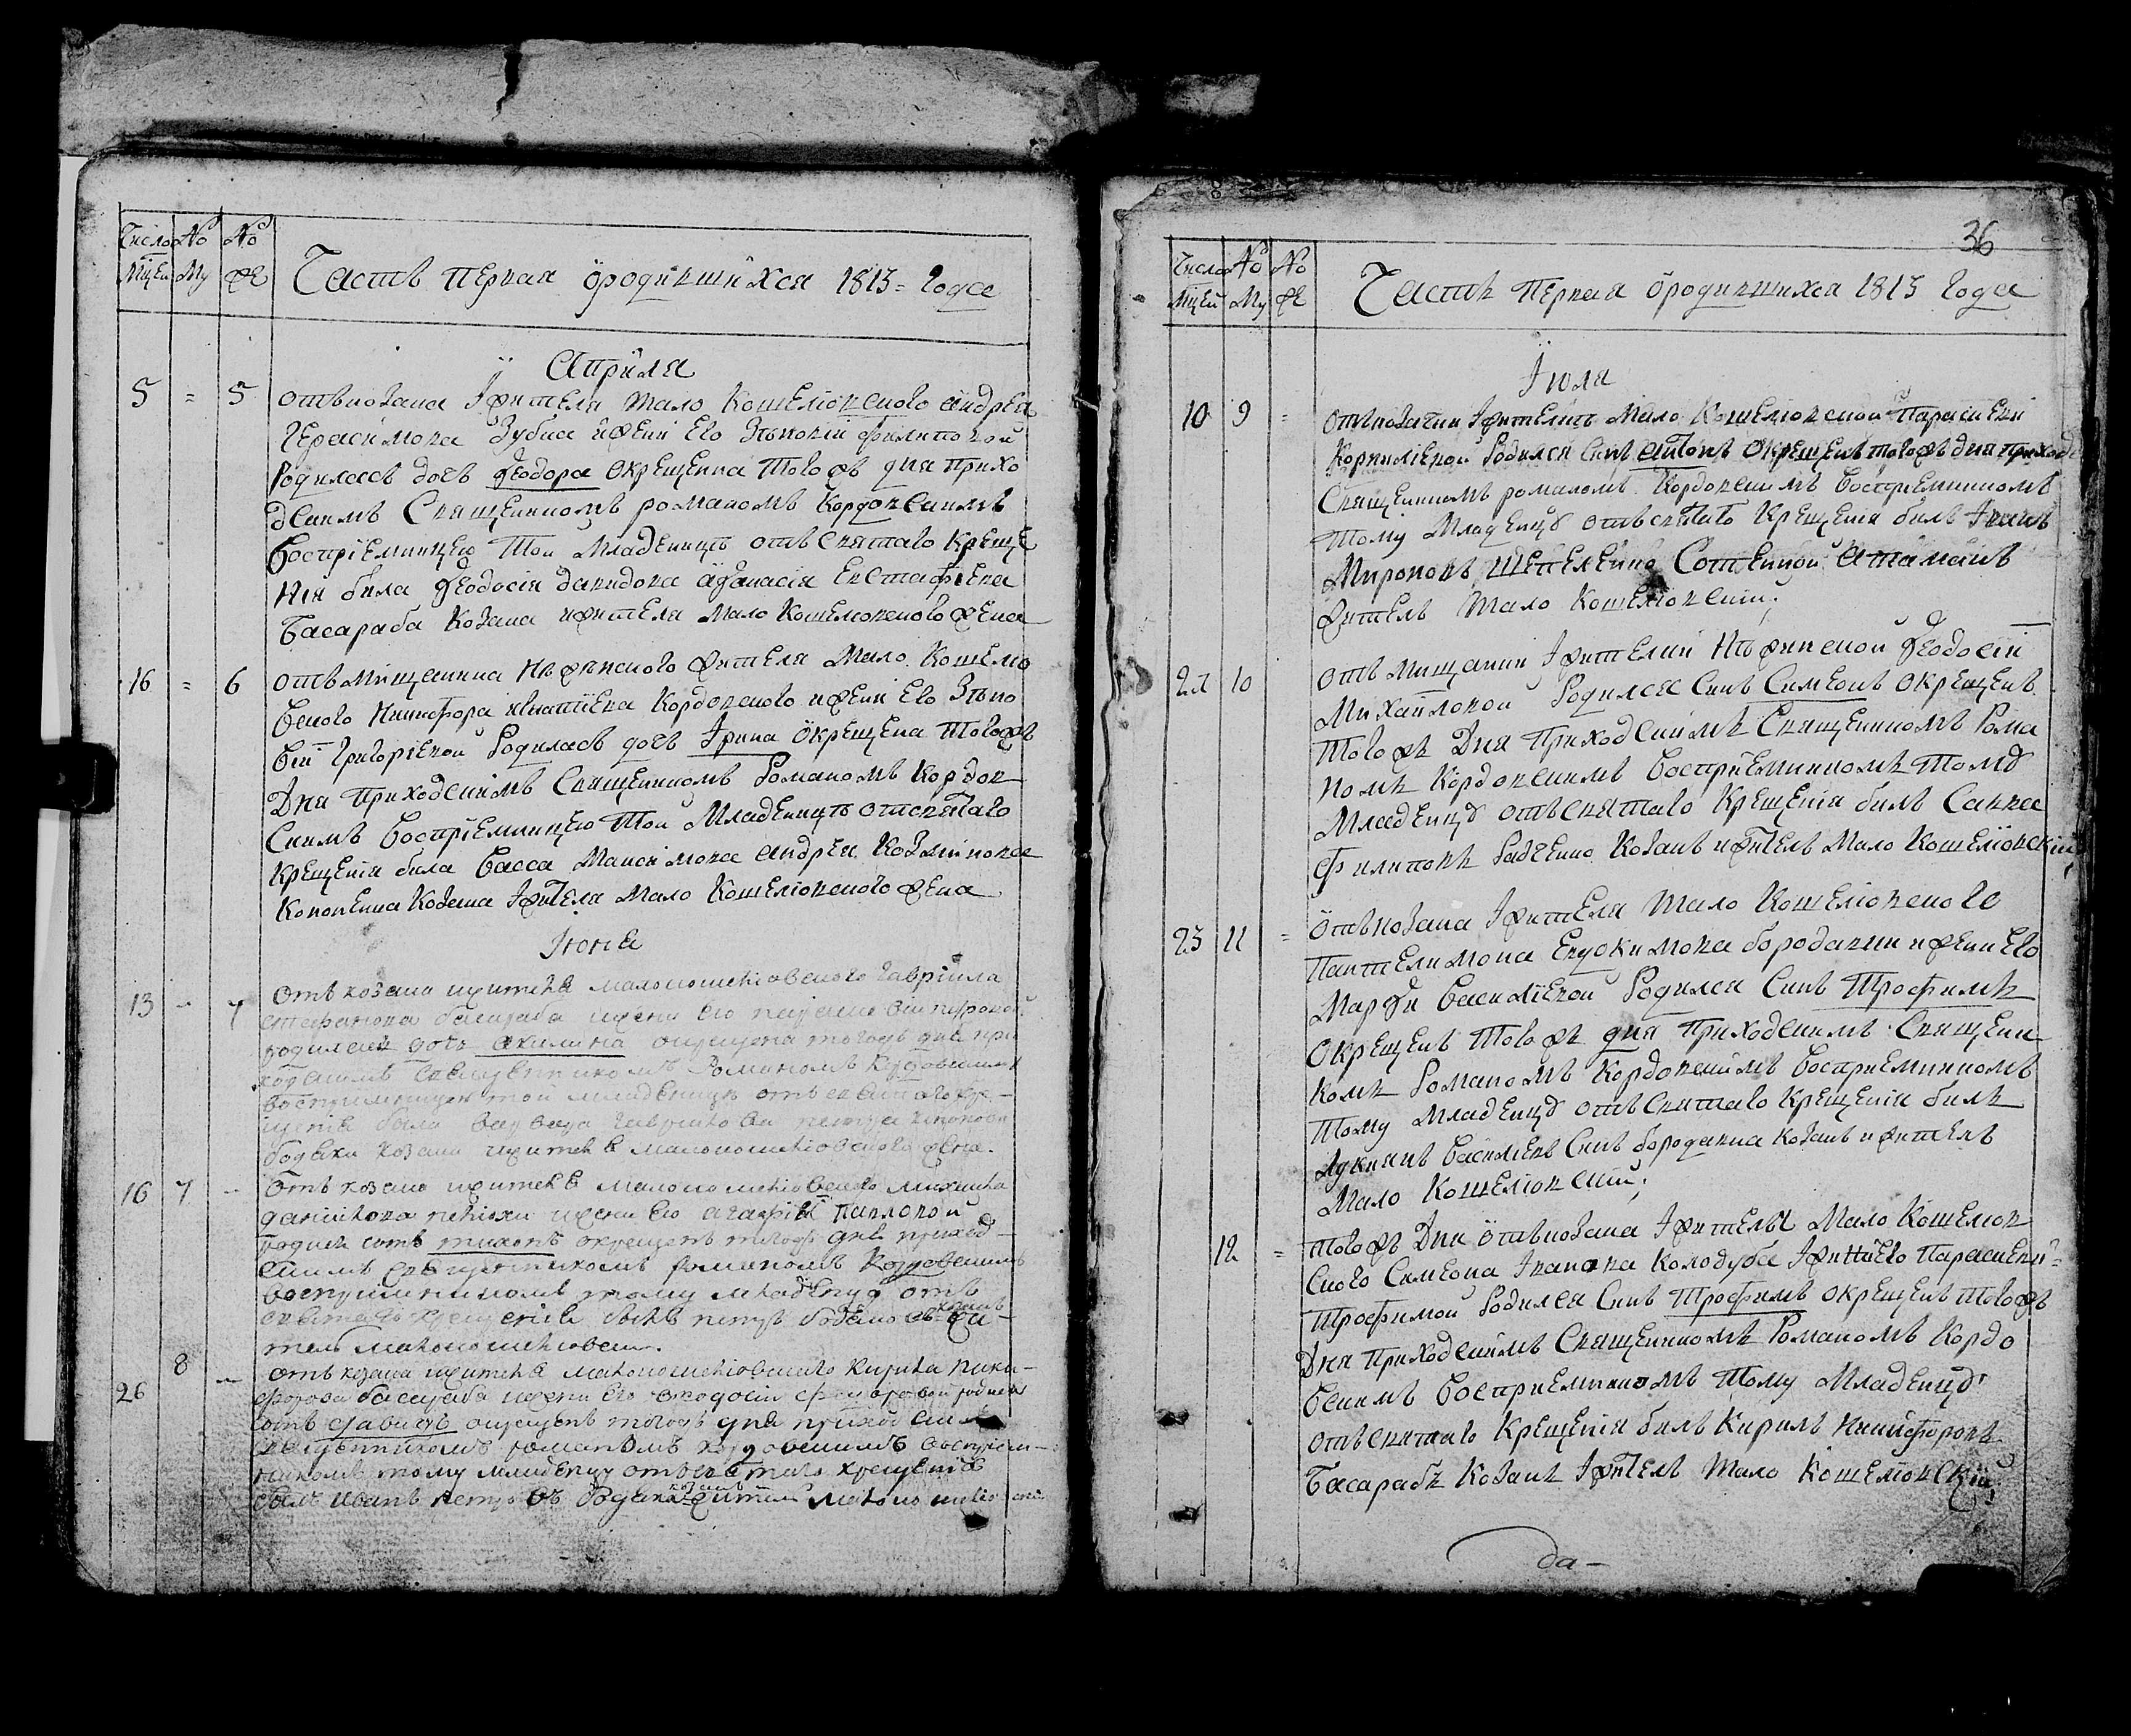 Число № №
Мцей Му Же
Часть первая ӧродившихся 1813 = года
Апрѝля
5 = 5 отъ козака Іжителя Мало Кошелювского Андрея
Герасимова Зубка ижени Его Зѣновіи Филиповой
Родилась дочь Феодора окрещенна того жъ дня прихо
дскимъ Священникомъ романомъ Кордовскимъ
воспріемницею той Младеницѣ отъ святаго Креще
нія била Феодосія давидова Афанасія Евстафіева
Басараба Козака ижителя Мало Кошелювского Жена
16 = 6 отъ мищанина Нѣжинского жителя Мало Кошелю
вского Никифора игнатіева Кордовского ижени Его Зѣно
віи Григоріевой Родилась дочь Ірина Ӧкрещена того жъ
Дня приходскимъ Священникомъ Романомъ Кордов
скимъ воспріемницею той Младеницѣ отъ святаго
Крещенія била Васса Максимова андрея Козминова
Коноπенка Козака Іжителя Мало Кошелювского жена
Іюня
13 - 7 отъ козака ижителя малокошеліовского гавріила
стефанова басараба ижени его
родилась дочь акилина окрещена тогожъ дня при
ходскимъ священникомъ Романомъ Кордовскимъ
воспріимницею той младеницѣ отъ святаго кре-
щенія била варвара гавриlова петра
бодака козака жителя малокошеліовского жена.
16 7 - Отъ козака ижителя малокошеліовского михаила
данилова ижени его агафіи Павловой
родися синъ тихонъ окрещенъ тогожъ дня приход-
скимъ священникомъ романомъ Кордовскимъ
воспріимникомъ тому младенцу отъ
святаго крещенія билъ петръ козакъ жи-
тель малокошеліовскій.
26 8 - отъ козака ижителя малокошеліовского кирила ники-
форова басараба ижени его феодосіи феодоровой родися
синъ давидъ окрещенъ тогожъ дня приходским
священникомъ романомъ кордовскимъ воспріем-
никомъ тому младенцу отъ святаго крещенія
билъ иванъ петровъ козакъ житель малокошеліовскій
36
Число № №
Мцей Му Же
Часть Первая ӧродившихся 1813 года
Іюля
10 9 = отъ козачки Іжителки Мало Кошелювской Параскеви
Корниліевой Родился Синъ Антонъ Окрещенъ того жъ дня приход
Священникомъ романомъ Кордовскимъ воспріемникомъ
тому Младенцу отъ святаго Крещенія билъ Іванъ
Мироновъ Шепеленко Сотенной Атаманъ
житель Мало Кошелювскій;
21 10 отъ мищанки Іжителки Нѣжинской Феодосіи
Михайловой Родился Синъ Симеонъ окрещенъ
того жъ Дня Приходскимъ Священникомъ Рома
номъ Кордовскимъ воспріемникомъ тому
Младенцу отъ святаго Крещенія билъ Савва
Филиповъ Радченко Козакъ ижитель Мало Кошелювскій
23 11 = Ӧтъ козака Іжителя Мало Кошелювского
Пантелимона Евдокимова бородавки ижени Его
Марфи Василіевой Родился Синъ Трофимъ
окрещенъ того жъ дня приходскимъ Священни
комъ Романомъ Кордовскимъ воспріемникомъ
тому Младенцу отъ святаго Крещенія билъ
Лукіянъ Василіевъ Синъ бородавка Козакъ ижитель
Мало Кошелювскій;
12 = того жъ Дня ӧтъ козака Іжителя Мало Кошелюв
ского Симеона Іванова Колодуба Іжени Его Параскеви
Трофимой Родился Синъ Трофимъ окрещенъ того жъ
Дня Приходскимъ Священникомъ Романомъ Кордо
вскимъ воспріемникомъ тому Младенцу
отъ святаго Крещенія билъ Кирилъ Никифоровъ
Басарабъ Козакъ Іжитель Мало Кошелювскій;
да-